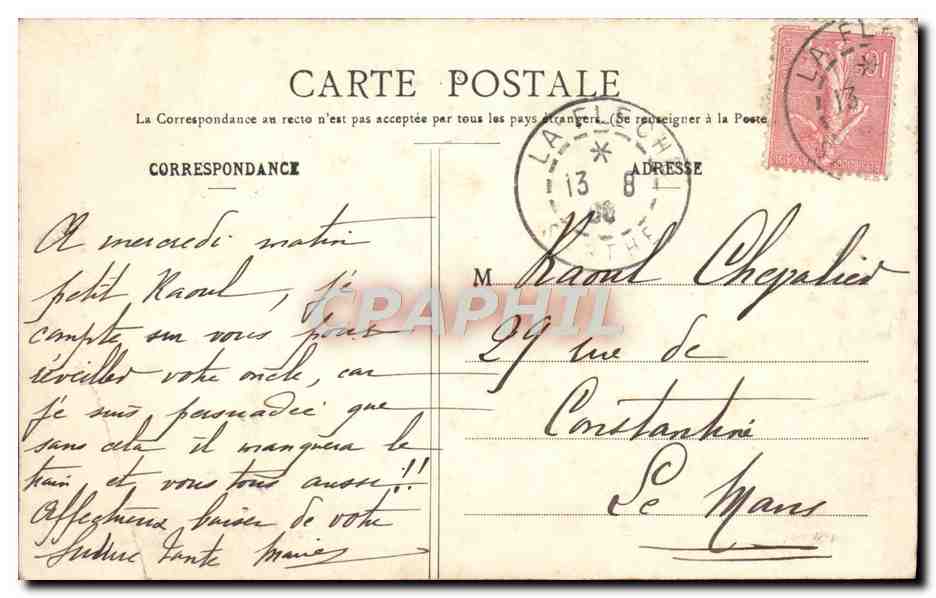 CARTE POSTALE
La Correspondance au recto n'est pas acceptée par tous les pays étrangers. (Se renseigner à la Poste
CORRESPONDANCE
ADRESSE
LA FLECHE
13 8
SARTHE
LA FLE
13
10
A mercredi matin
petit Raoul, je
compte sur vous pour
réveiller votre oncle, car
je suis persuadée que
sans cela il manquera le
train et vous tous aussi!!
Affectueux baiser de votre
future tante Marie
M Raoul Chevalier
29 rue de
Constantine
Le Mans
CPAPHIL